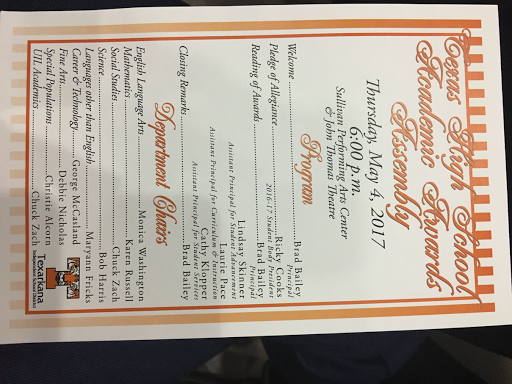 Texas High School
Academic Awards
Assembly
Thursday, May 4, 2017
6:00 p.m.
Sullivan Performing Arts Center
& John Thomas Theatre
Program
Welcome ........ Brad Bailey
Principal
Pledge of Allegiance ........ Ricky Cooks
2016-17 Student Body President
Reading of Awards ........ Brad Bailey
Principal
Lindsay Skinner
Assistant Principal for Student Advancement
Laurie Pace
Assistant Principal for Curriculum & Instruction
Cathy Klopper
Assistant Principal for Student Services
Closing Remarks ........ Brad Bailey
Department Chairs
English Language Arts ........ Monica Washington
Mathematics ........ Karen Russell
Social Studies ........ Chuck Zach
Science ........ Bob Harris
Languages other than English ........ Maryann Fricks
Career & Technology ........ George McCasland
Fine Arts ........ Debbie Nicholas
Special Populations ........ Christie Alcorn
UIL Academics ........ Chuck Zach
Texarkana